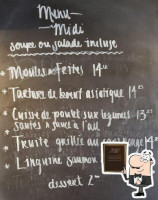 Menu
Midi
soupe ou salade incluse
* Moules et Frites 14
* Tartare de boeuf asiatique 14
* Cuisse de poulet sur légumes 13
sautés à l'ail
* Truite grillée au 14
* Linguine saumon
dessert 2